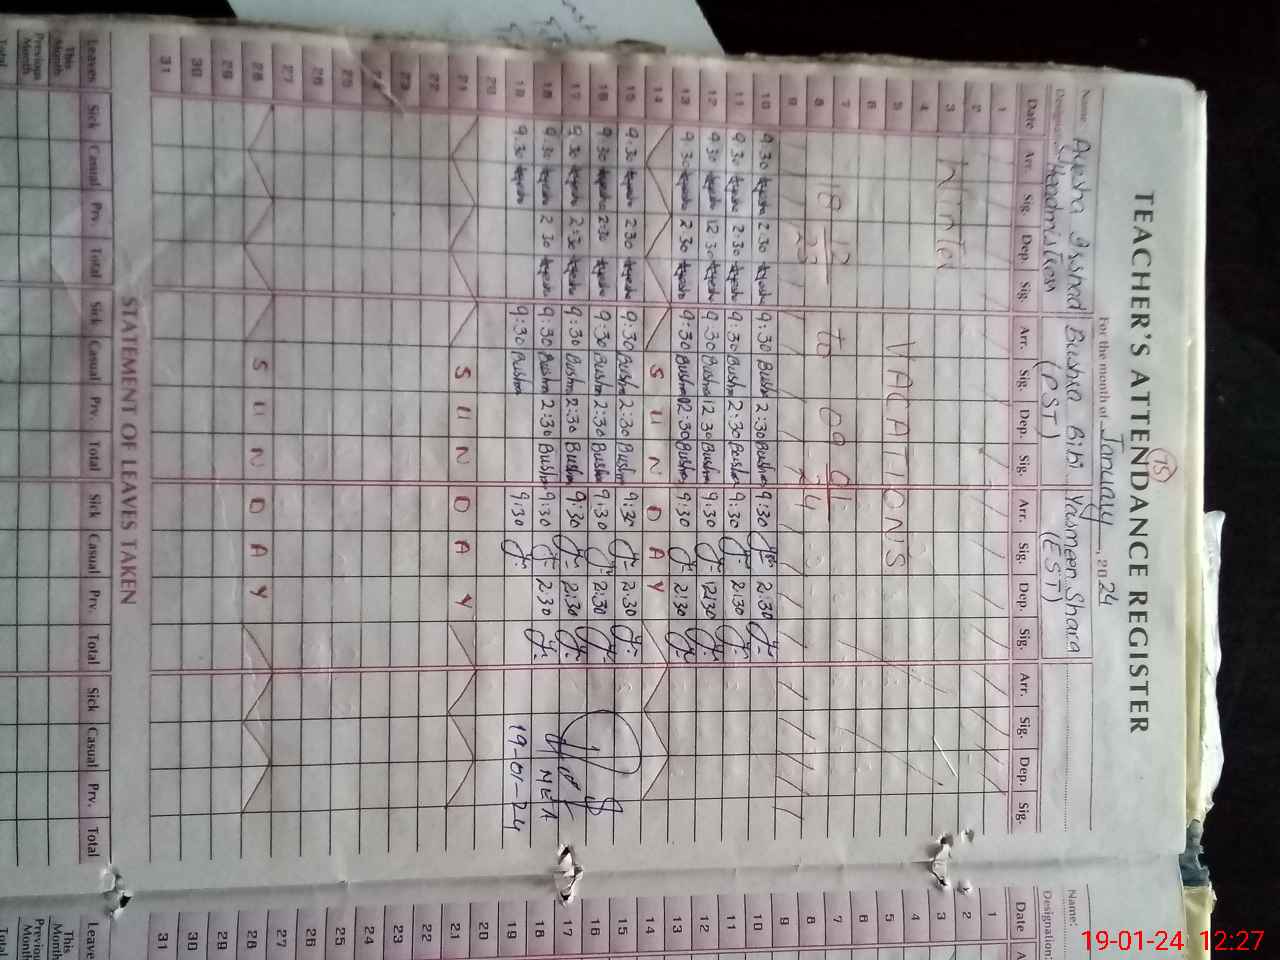 TEACHER'S ATTENDANCE REGISTER
75
For the month of January, 2024
Name: Ayesha Irshad Bushra Bibi Yasmeen Shara
Designation: (Headmistress) (PST) (EST)
Date Arr. Sig. Dep. Sig. Arr. Sig. Dep. Sig. Arr. Sig. Dep. Sig. Arr. Sig. Dep. Sig.
1
2
3 Winter
4
5 VACATIONS
6
7
8 18-12-23 to 09-01-24
9
10 9:30 Ayesha 2:30 Ayesha 9:30 Bushra 2:30 Bushra 9:30 2:30
11 9:30 Ayesha 2:30 Ayesha 9:30 Bushra 2:30 Bushra 9:30 2:30
12 9:30 Ayesha 12:30 Ayesha 9:30 Bushra 12:30 Bushra 9:30 12:30
13 9:30 Ayesha 2:30 Ayesha 9:30 Bushra 02:30 Bushra 9:30 2:30
14 SUNDAY
15 9:30 Ayesha 2:30 Ayesha 9:30 Bushra 2:30 Bushra 9:30 2:30
16 9:30 Ayesha 2:30 Ayesha 9:30 Bushra 2:30 Bushra 9:30 2:30
17 9:30 Ayesha 2:30 Ayesha 9:30 Bushra 2:30 Bushra 9:30 2:30
18 9:30 Ayesha 2:30 Ayesha 9:30 Bushra 2:30 Bushra 9:30 2:30 MEA
19 9:30 Ayesha 9:30 Bushra 9:30 19-01-24
20
21 SUNDAY
22
23
24
25
26
27
28 SUNDAY
29
30
31
STATEMENT OF LEAVES TAKEN
Leaves Sick Casual Prv. Total Sick Casual Prv. Total Sick Casual Prv. Total Sick Casual Prv. Total
This Month
Previous Month
Total
Name:
Designation:
Date
1
2
3
4
5
6
7
8
9
10
11
12
13
14
15
16
17
18
19
20
21
22
23
24
25
26
27
28
29
30
31
Leave
This Month
Previous Month
Total
19-01-24 12:27